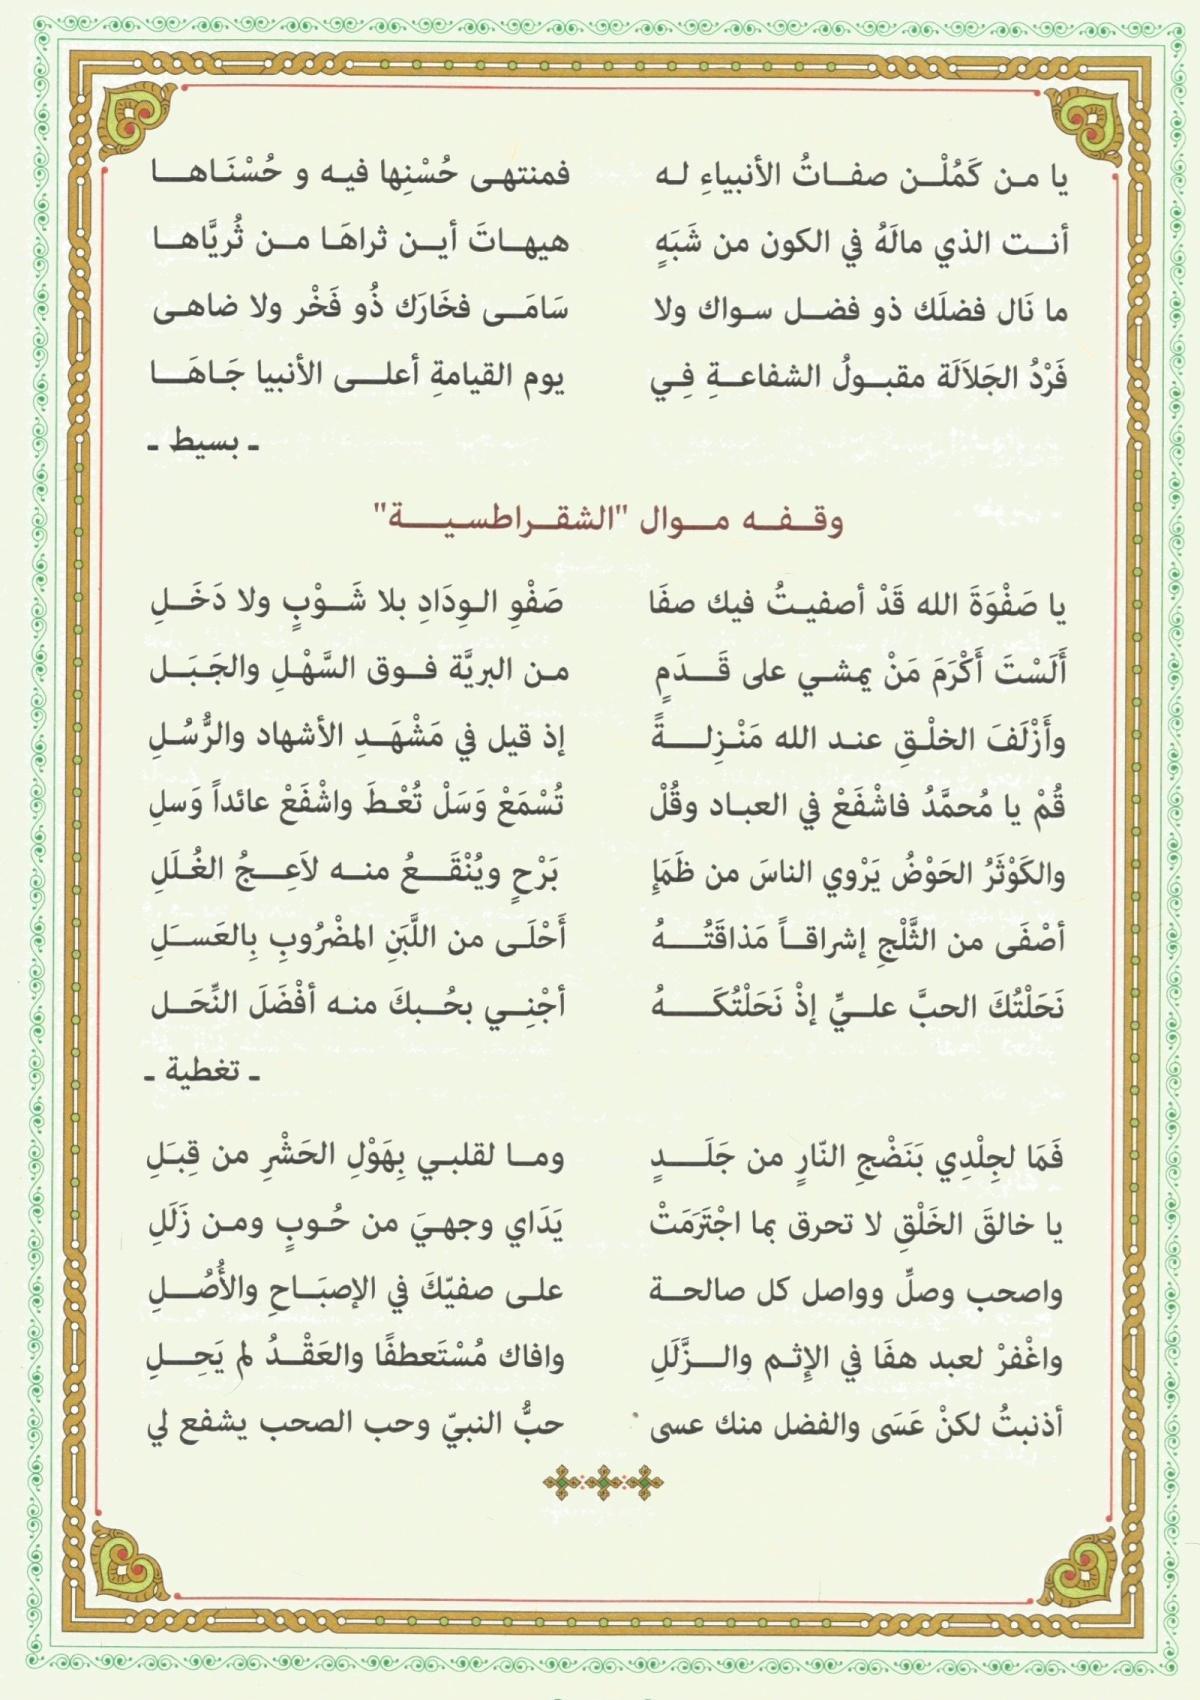 يا من كَمُلْن صفاتُ الأنبياءِ له فمنتهى حُسْنِها فيه و حُسْنَاها
أنت الذي مالَهُ في الكون من شَبَهٍ هيهاتَ أين ثراهَا من ثُريَّاها
ما نَال فضلَك ذو فضل سواك ولا سَامَى فخَارَك ذُو فَخْر ولا ضاهى
فَرْدُ الجَلاَلَة مقبولُ الشفاعةِ فِي يوم القيامةِ أعلى الأنبيا جَاهَا
ـ بسيط ـ
وقفه موال "الشقراطسية"
يا صَفْوَةَ الله قَدْ أصفيتُ فيك صفَا صَفْوِ الوِدَادِ بلا شَوْبٍ ولا دَخَلِ
أَلَسْتَ أَكْرَمَ مَنْ يمشي على قَدَمٍ من البريَّة فوق السَّهْلِ والجَبَل
وأَزْلَفَ الخلْقِ عند الله مَنْزِلةً إذ قيل في مَشْهَدِ الأشهاد والرُّسُلِ
قُمْ يا مُحمَّدُ فاشْفَعْ في العباد وقُلْ تُسْمَعْ وَسَلْ تُعْطَ واشْفَعْ عائداً وَسلِ
والكَوْثَرُ الحَوْضُ يَرْوي الناسَ من ظَمَإِ بَرْحٍ ويُنْقَعُ منه لاَعِجُ الغُلَلِ
أصْفَى من الثَّلْجِ إشراقاً مَذاقَتُهُ أَحْلَى من اللَّبَنِ المضْرُوبِ بِالعَسلِ
نَحَلْتُكَ الحبَّ عليٍّ إذْ نَحَلْتُكَهُ أجْنِي بحُبكَ منه أفْضَلَ النِّحَل
ـ تغطية ـ
فَمَا لجِلْدِي بَنَضْجِ النّارِ من جَلَدٍ وما لقلبي بِهَوْلِ الحَشْرِ من قِبَلِ
يا خالقَ الخَلْقِ لا تحرق بما اجْتَرَمَتْ يَدَاي وجهيَ من حُوبٍ ومن زَلَلِ
واصحب وصلِّ وواصل كل صالحة على صفيّكَ في الإصبَاحِ والأُصُلِ
واغْفرْ لعبد هفَا في الإِثم والزَّلَلِ وافاك مُسْتَعطفًا والعَقْدُ لم يَحِلِ
أذنبتُ لكنْ عَسَى والفضل منك عسى حبُّ النبيّ وحب الصحب يشفع لي